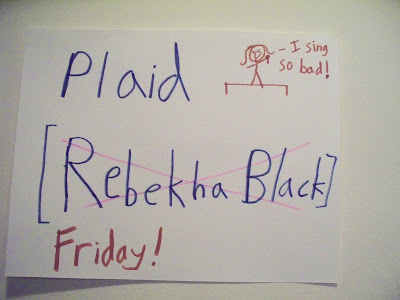 Plaid
- I sing
so bad!
[Rebekha Black]
Friday!